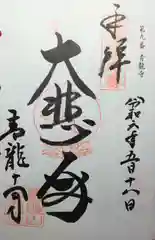 第九番 青龍寺
奉拝
令和六年五月十八日
大悲
青龍寺